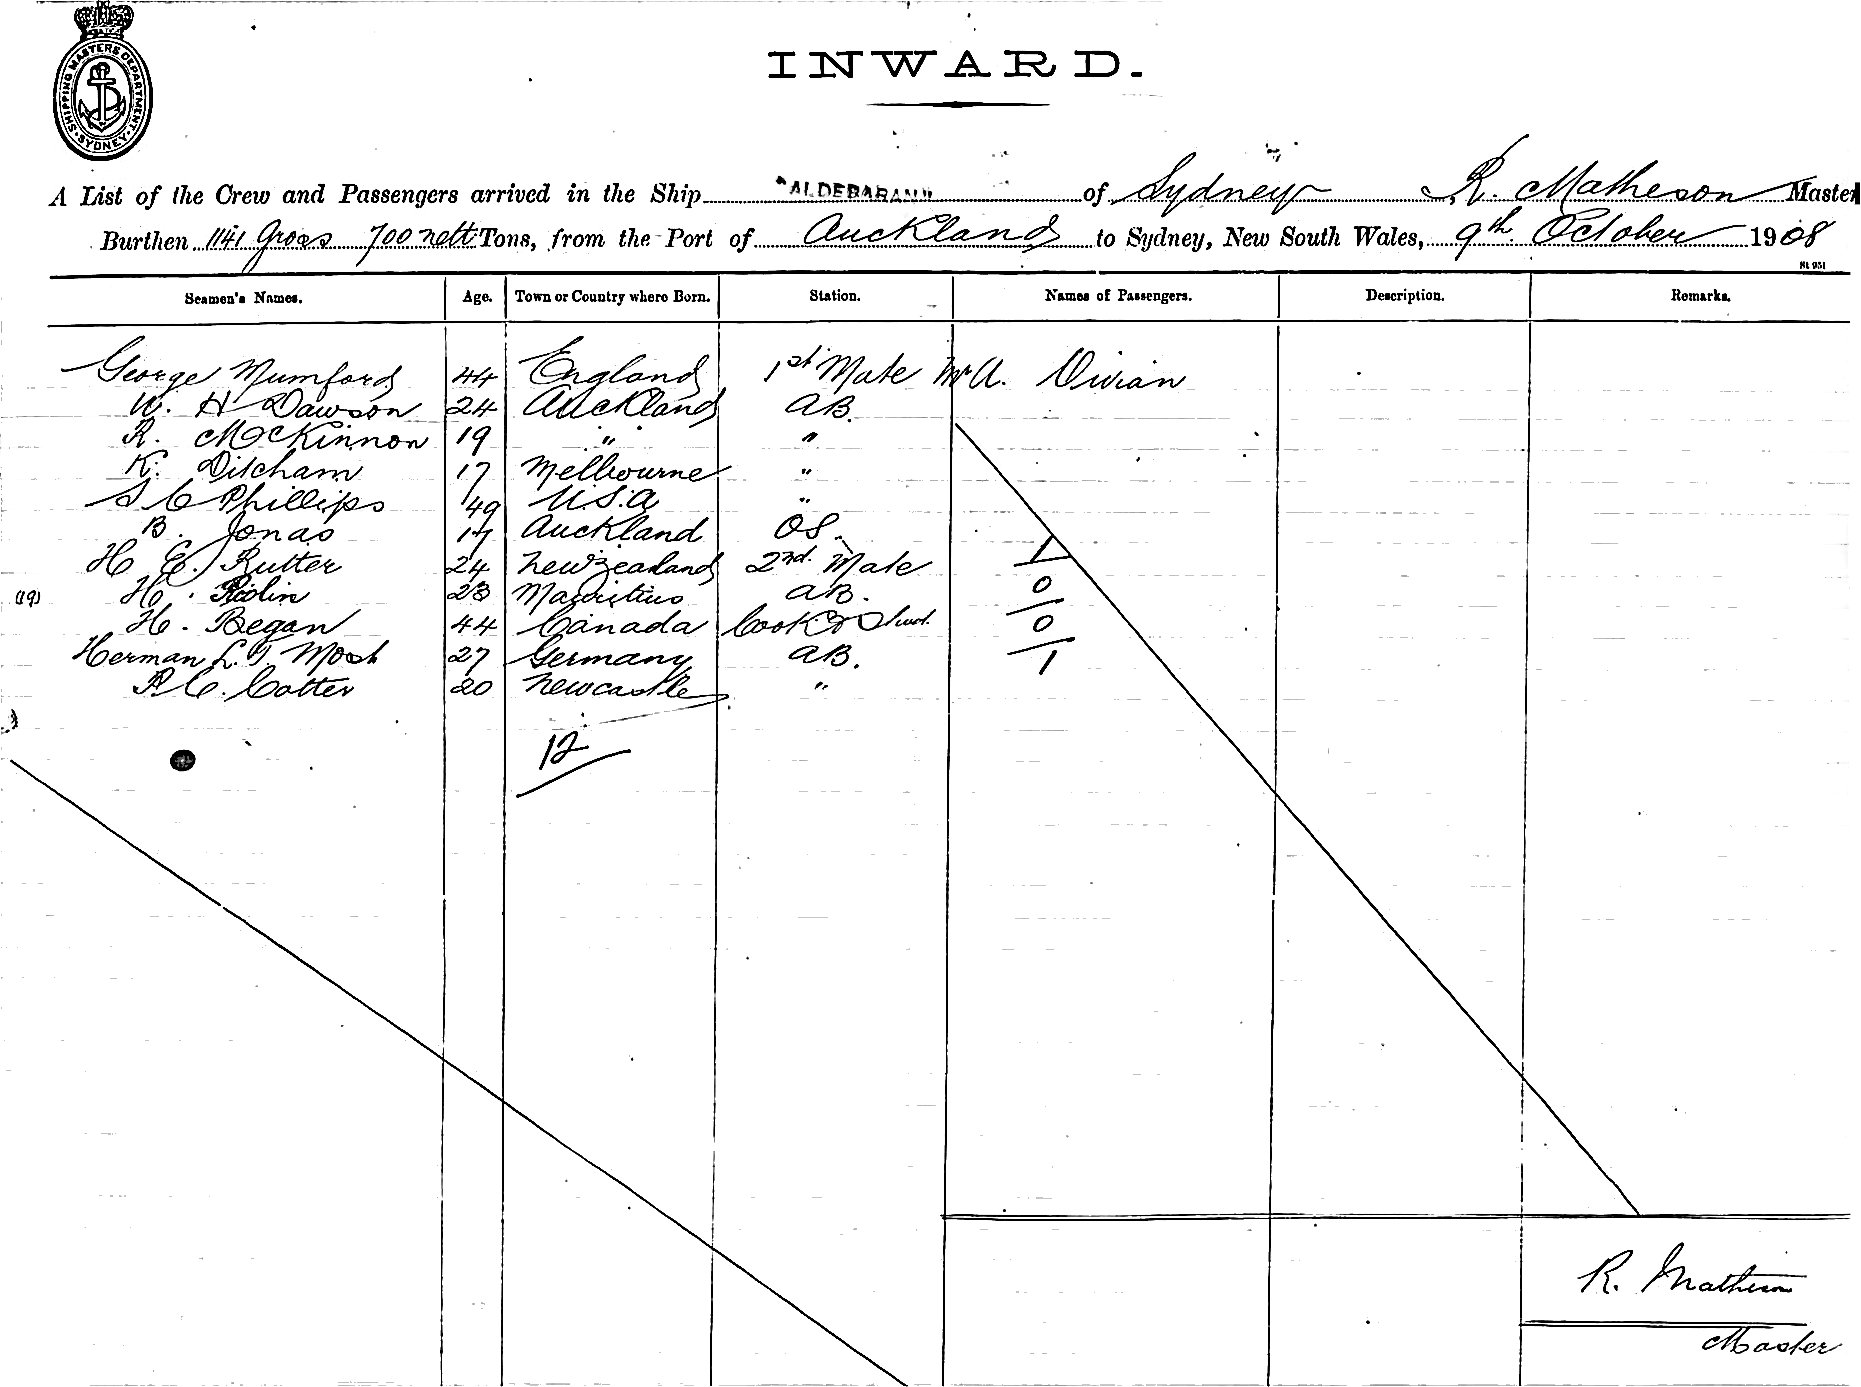 SHIPPING MASTERS DEPARTMENT · SYDNEY ·
INWARD.
A List of the Crew and Passengers arrived in the Ship "ALDEBARAN" of Sydney R. Matheson Master
Burthen 1141 Gross 700 nett Tons, from the Port of Auckland to Sydney, New South Wales, 9th October 1908
Seamen's Names. Age. Town or Country where Born. Station. Names of Passengers. Description. Remarks.
George Mumford 44 England 1st Mate Mr A. Vivian
W. H Dawson 24 Auckland AB.
R. McKinnon 19 " "
K. Ditcham 17 Melbourne "
S C Phillips 49 U.S.A "
B. Jonas 17 Auckland OS.
H E. Rutter 24 New Zealand 2nd Mate 1
H. 23 Mauritius AB. 0
H. Began 44 Canada Cook & Stwd. 0
Herman L. T. 27 Germany AB. 1
R C. Cotter 20 Newcastle "
12
R. Matheson
Master